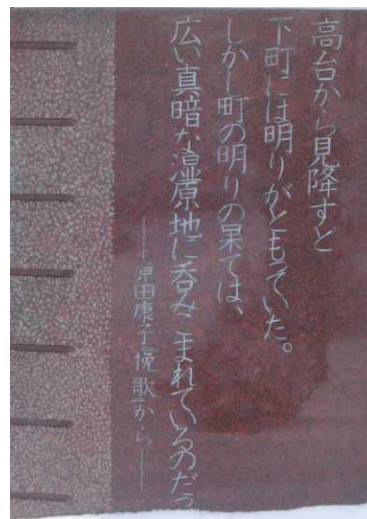 高台から見降すと
下町には明りがともっていた。
しかし町の明りの果ては、
広い真暗な湿原地に呑みこまれているのだっ
——原田康子「挽歌」から——